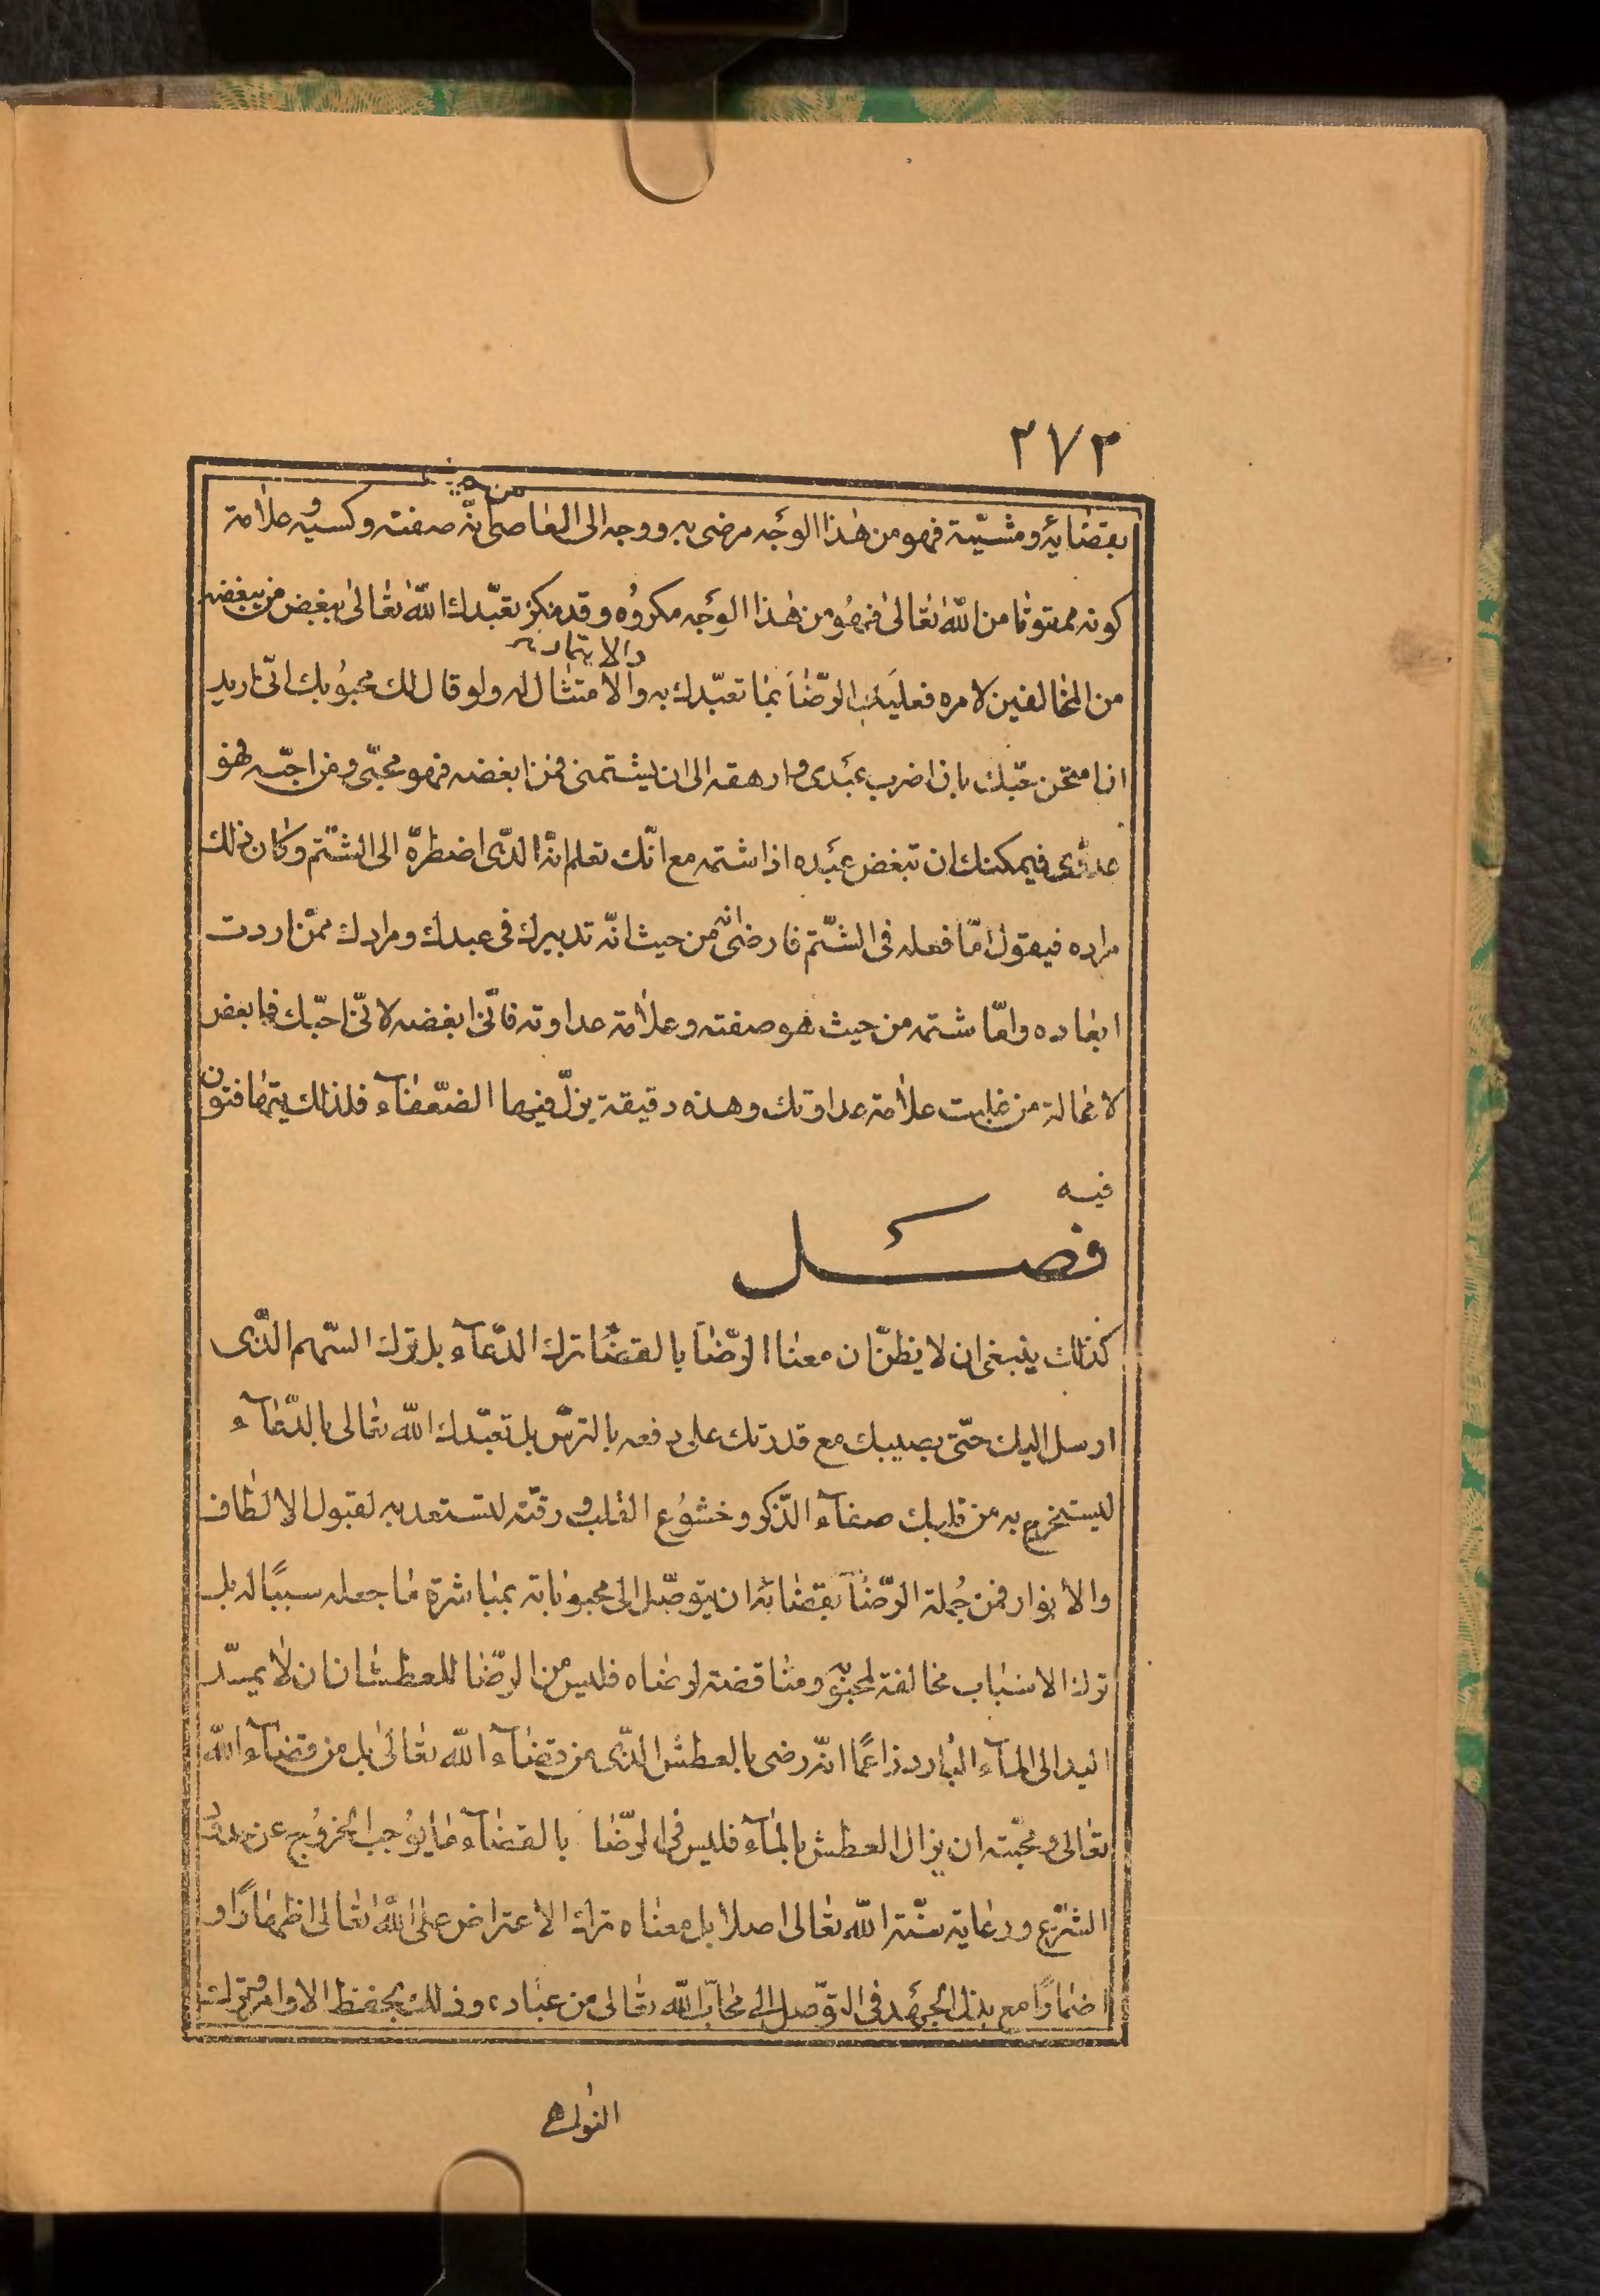 ٢٧٢
من حيث
بقضایه و مشیّته فهو من هذا الوجه مرضی به و وجه الی العاصی انّه صفته و کسبه و علامة
کونه ممقوتا من اللّه تعالیٰ فهو من هذا الوجه مکروه و قد تعبّدك اللّه تعالیٰ ببغض من یبغضه
والایتمار به
من المخالفین لامره فعلیك الرّضا بما تعبّدك به والامتثال له ولو قال لك محبوبك انّی ارید
ان امتحن حبّك بان اضرب عبدی و ارهقه الی ان یشتمنی فمن ابغضه فهو محبّی و من احبّه فهو
عدوّی فیمکنك ان تبغض عبده اذا شتمه مع انّك تعلم انّه الّذی اضطرّه الی الشّتم و کان ذلك
مراده فیقول امّا فعله فی الشّتم فارضی انّه من حیث انّه تدبیرك فی عبدك و مرادك ممّن اردت
ابعاده و امّا شتمه من حیث هو صفته و علامة عداوته فانّی ابغضه لانّی احبّك فابغض
لا محالة من علیه علامة عداوتك و هذه دقیقة یزلّ فیها الضّعفآء فلذلك یتهافتون
فیه
فصل
کذلك ینبغی ان لا یظنّ ان معنا الرّضا بالقضا ترك الدّعآء بل ترك السّهم الّذی
ارسل الیك حتّی یصیبك مع قدرتك علی دفعه بالترس بل تعبّدك اللّه تعالی بالدّعآء
لیستخرج به من قلبك صفآء الذّکر و خشوع القلب و رقّته لتستعد به لقبول الالطاف
والانوار فمن جملة الرّضا بقضائه ان یتوصّل الی محبوباته بمباشرة ما جعله سببًا له بل
ترك الاسباب مخالفة لمحبوبه و مناقضة لرضاه فلیس من الرّضا للعطشان ان لا یمدّ
الید الی المآء البارد زاعمًا انّه رضی بالعطش الّذی من قضآء اللّه تعالیٰ بل من قضآء اللّه
تعالی و محبّته ان یزال العطش بالمآء فلیس فی الرّضا بالقضآء ما یوجب الخروج عن حدود
الشّرع و رعایة سنّة اللّه تعالی اصلا بل معناه ترك الاعتراض علی اللّه تعالی اظهارًا و
اضمارًا مع بذل الجهد فی التّوصل الی محابّ اللّه تعالی من عباده و ذلك بحفظ الاوامر و ترك
النواهی